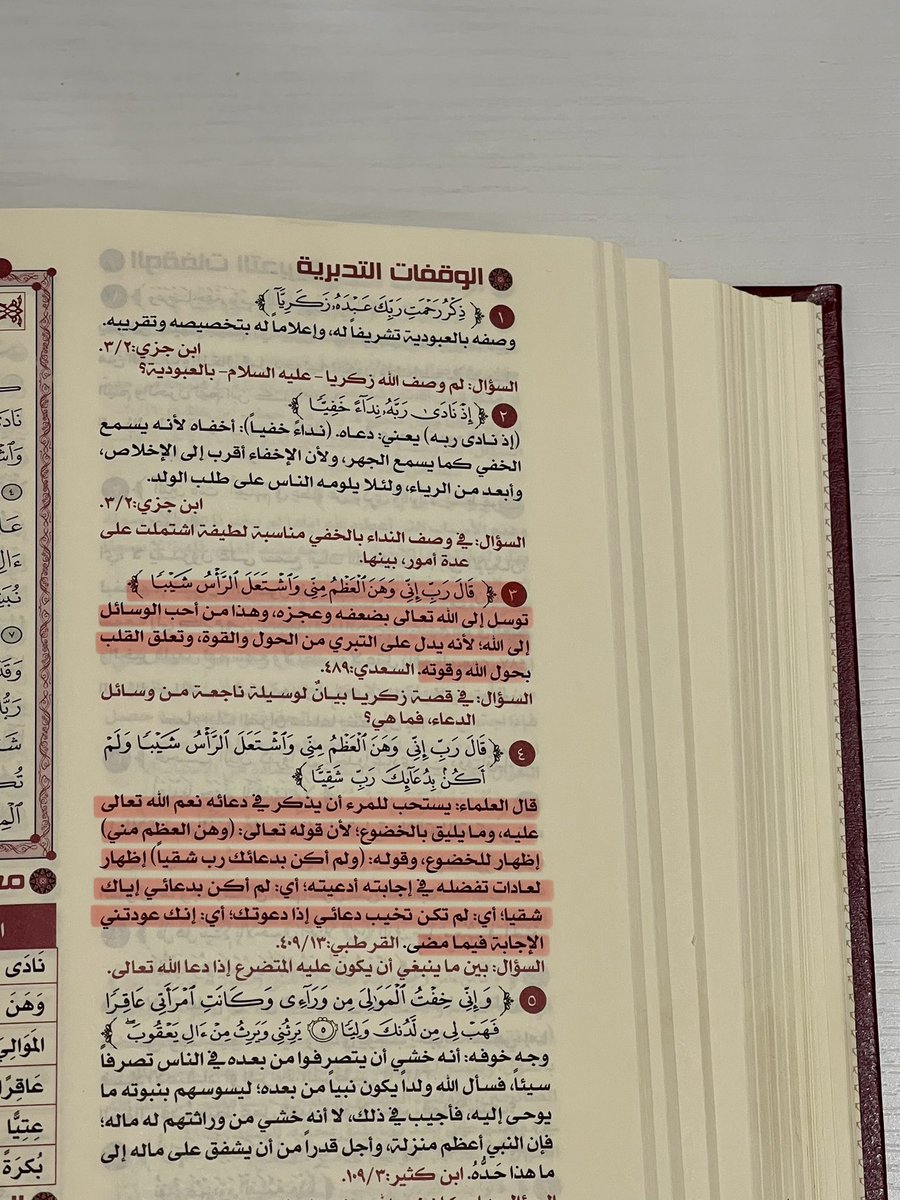 الوقفات التدبرية
١ ﴿ ذِكْرُ رَحْمَتِ رَبِّكَ عَبْدَهُۥ زَكَرِيَّآ ﴾
وصفه بالعبودية تشريفاً له، وإعلاماً له بتخصيصه وتقريبه.
ابن جزي:٣/٢.
السؤال: لم وصف الله زكريا- عليه السلام- بالعبودية؟
٢ ﴿ إِذْ نَادَىٰ رَبَّهُۥ نِدَآءً خَفِيًّا ﴾
(إذ نادى ربه) يعني: دعاه. (نداءً خفياً): أخفاه لأنه يسمع
الخفي كما يسمع الجهر، ولأن الإخفاء أقرب إلى الإخلاص،
وأبعد من الرياء، ولئلا يلومه الناس على طلب الولد.
ابن جزي:٣/٢.
السؤال: في وصف النداء بالخفي مناسبة لطيفة اشتملت على
عدة أمور، بينها.
٣ ﴿ قَالَ رَبِّ إِنِّي وَهَنَ ٱلْعَظْمُ مِنِّي وَٱشْتَعَلَ ٱلرَّأْسُ شَيْبًا ﴾
توسل إلى الله تعالى بضعفه وعجزه، وهذا من أحب الوسائل
إلى الله؛ لأنه يدل على التبري من الحول والقوة، وتعلق القلب
بحول الله وقوته. السعدي:٤٨٩.
السؤال: في قصة زكريا بيانٌ لوسيلة ناجعة من وسائل
الدعاء، فما هي؟
٤ ﴿ قَالَ رَبِّ إِنِّي وَهَنَ ٱلْعَظْمُ مِنِّي وَٱشْتَعَلَ ٱلرَّأْسُ شَيْبًا وَلَمْ
أَكُنۢ بِدُعَآئِكَ رَبِّ شَقِيًّا ﴾
قال العلماء: يستحب للمرء أن يذكر في دعائه نعم الله تعالى
عليه، وما يليق بالخضوع؛ لأن قوله تعالى: (وهن العظم مني)
إظهار للخضوع، وقوله: (ولم أكن بدعائك رب شقياً) إظهار
لعادات تفضله في إجابته أدعيته؛ أي: لم أكن بدعائي إياك
شقيا؛ أي: لم تكن تخيب دعائي إذا دعوتك؛ أي: إنك عودتني
الإجابة فيما مضى. القرطبي:٤٠٩/١٣.
السؤال: بين ما ينبغي أن يكون عليه المتضرع إذا دعا الله تعالى.
٥ ﴿ وَإِنِّي خِفْتُ ٱلْمَوَٰلِيَ مِن وَرَآءِى وَكَانَتِ ٱمْرَأَتِي عَاقِرًا
فَهَبْ لِي مِن لَّدُنكَ وَلِيًّا ٥ يَرِثُنِي وَيَرِثُ مِنْ ءَالِ يَعْقُوبَ ۖ ﴾
وجه خوفه: أنه خشي أن يتصرفوا من بعده في الناس تصرفاً
سيئاً، فسأل الله ولداً يكون نبياً من بعده؛ ليسوسهم بنبوته ما
يوحى إليه، فأجيب في ذلك، لا أنه خشي من وراثتهم له ماله؛
فإن النبي أعظم منزلة، وأجل قدراً من أن يشفق على ماله إلى
ما هذا حَدُّهُ. ابن كثير:١٠٩/٣.
نَادَى
وَهَنَ
المَوَالِيَ
عَاقِرًا
عِتِيًّا
بُكرَةً